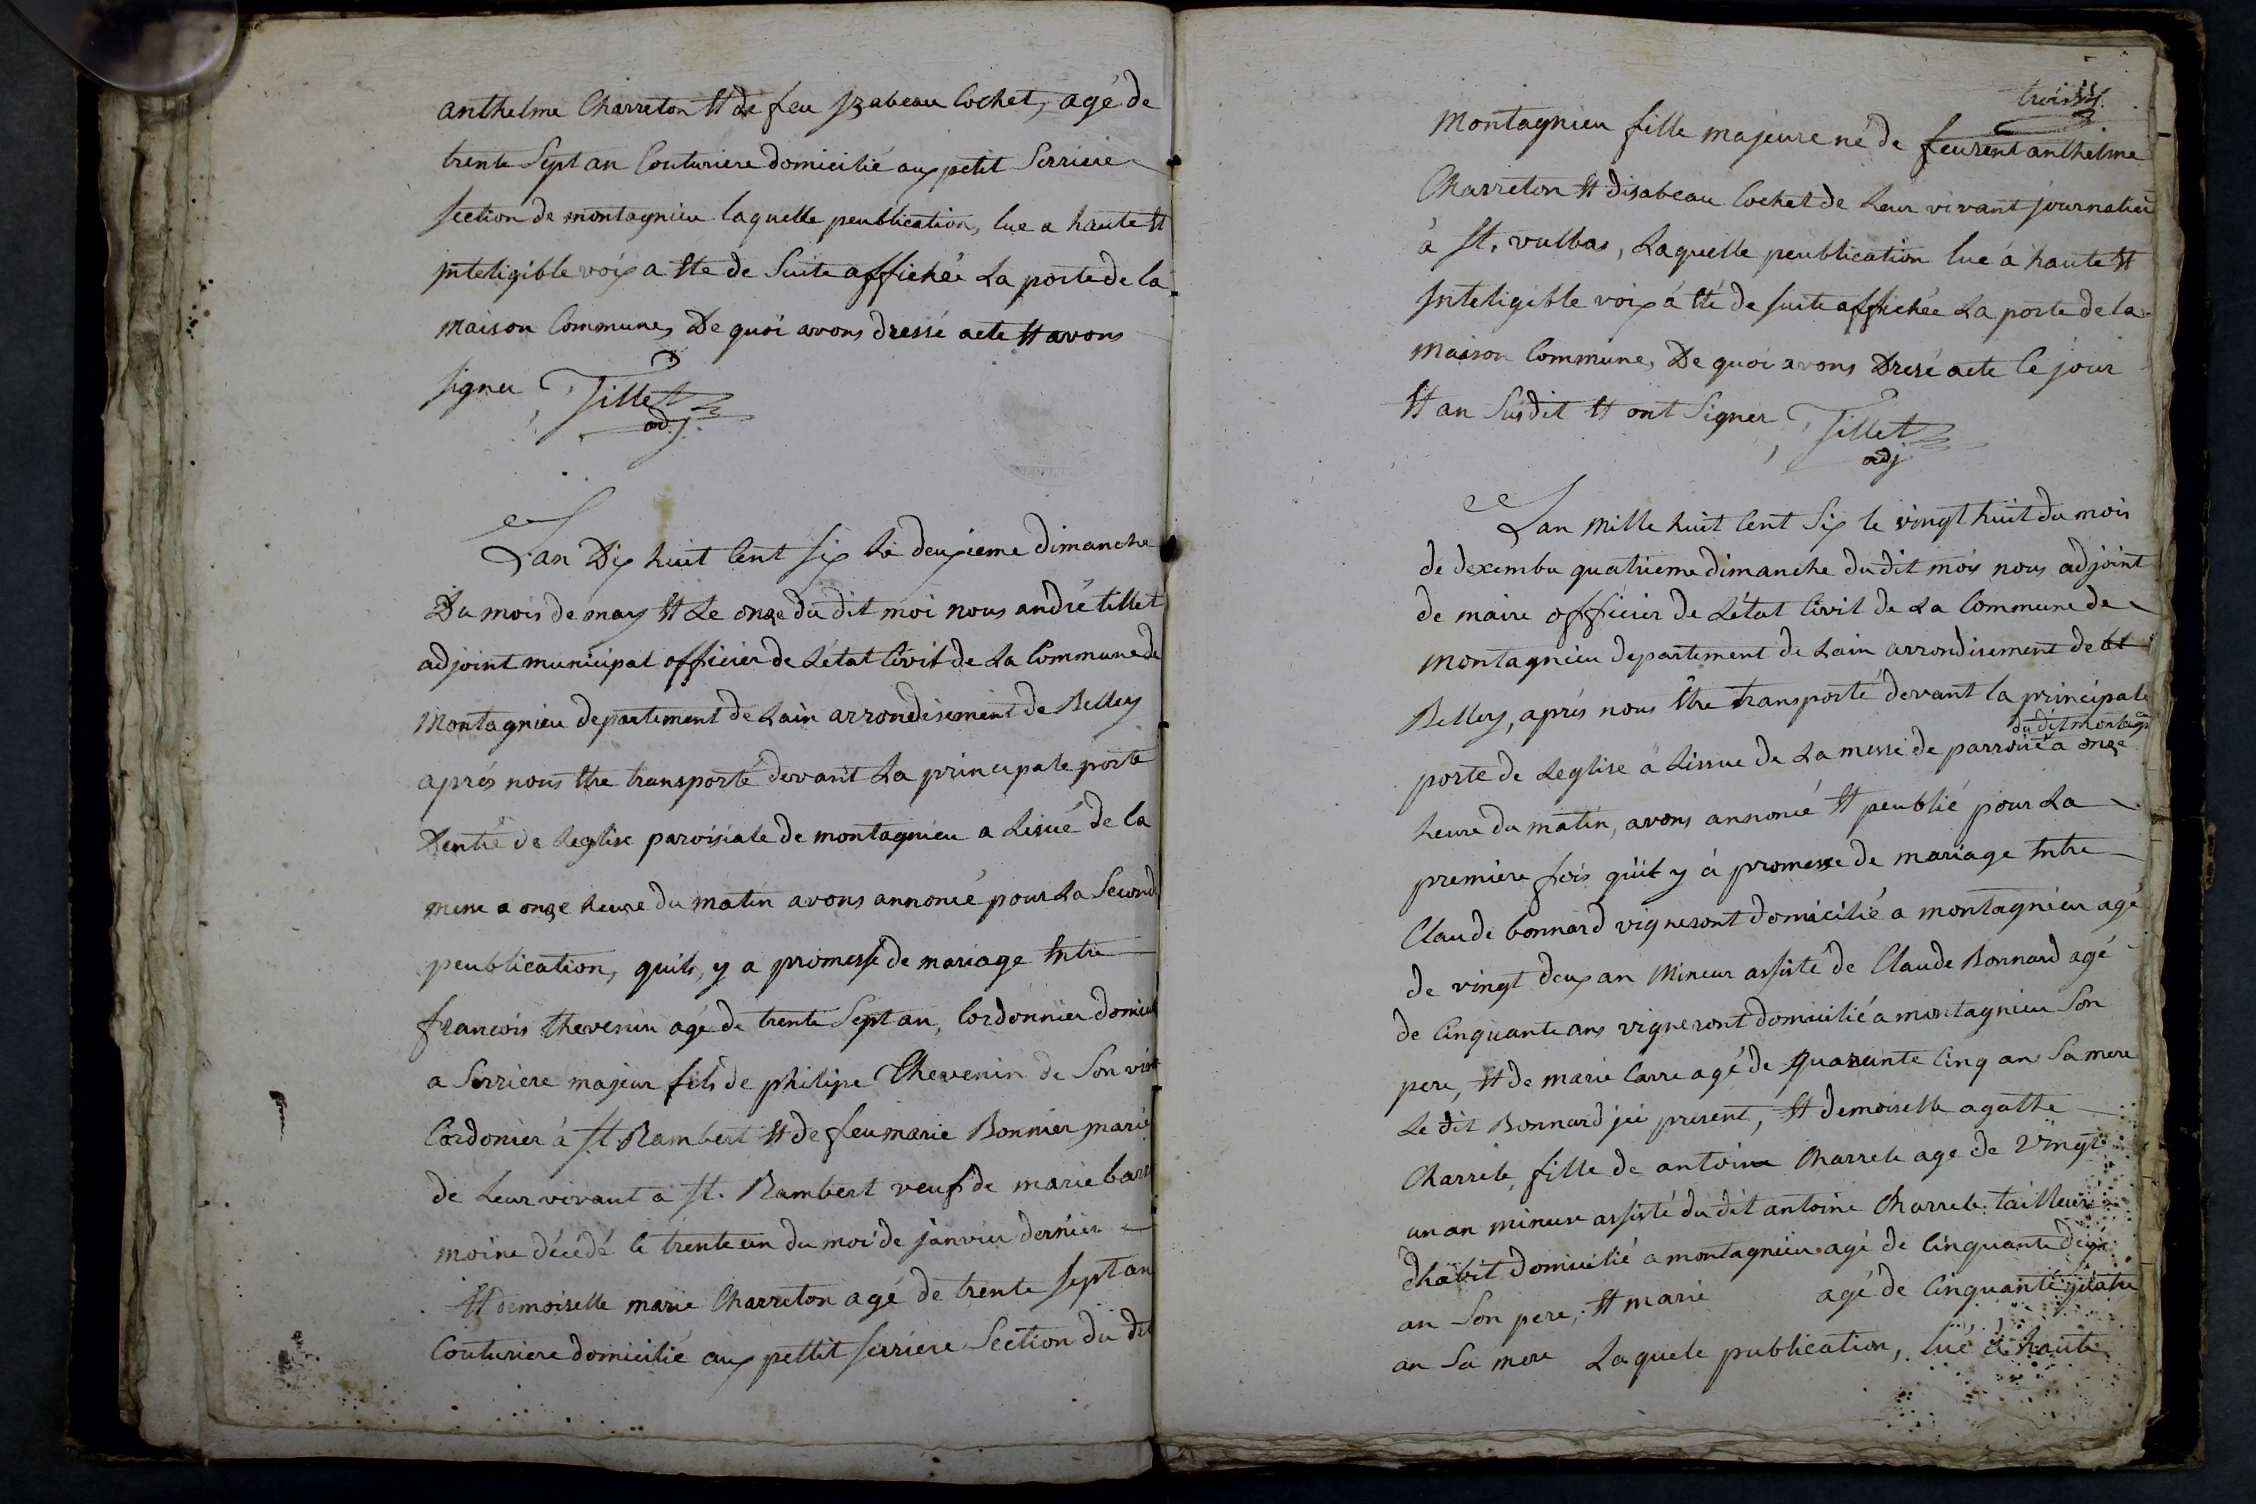 anthelme Charreton Et de feu Jzabeau Cochet, agé de
trente Sept an Couturiere domicilié aux petit Serriere
section de montagnieu laquelle peublication, lue a haute Et
jnteligible voix a Ete de Suite affichée La porte de la
maison Commune, De quoi avons dressé acte Et avons
signer Tillet
adj.
Lan Dix huit Cent six Le deuxieme dimanche
Du mois de may Et Le onze du dit moi nous andré tillet
adjoint municipal officier de Létat Civil de La Commune de
Montagnieu departement de Lain arrondisement de Belley
aprés nous Etre transporté devant La principale porte
Dentré de Leglise paroisiale de montagnieu a Lisué de la
messe a onze heure du matin avons annoncé pour La Second
peublication, quils, y a promesse de mariage Entre
francois thevenin agé de trente Sept an, Cordonnier domicil
a Serriere majeur fils de philipe Thevenin de Son viv
Cordonier à St Rambert Et de feu marie Bonnier marié
de Leur vivant a St. Rambert veuf de marie bar
moine décédé le trente un du moi de janvier dernier
Et demoiselle marie Charreton agé de trente sept an
Couturiere domicilié aux pettit serriere Section du dit
trois
Montagnieu fille majeure né de feu anthelme
Charreton Et disabeau Cochet de Leur vivant journalier
à St. vulbas, Laquelle peublication lue à haute Et
Jnteligible voix á Eté de suite affichée La porte de la
maison Commune, De quoi avons Dresé acte le jour
Et an Susdit Et ont Signer Tillet
adj
Lan mille huit Cent Six le vingt huit du mois
de dexembre quatrieme dimanche du dit mois nous adjoint
de maire offficier de Létat Civil de La Commune de
montagnieu departement de Lain arrondisement de
Belley, aprés nous Etre transporté devant la principale
du dit montagn
porte de Leglise à Lissue de La messe de parroise a onze
heure du matin, avons annoncé Et peublié pour La
premiere fois quil y à promesse de mariage Entre
Claude bonnard vigneront domicilié a montagnieu agé
de vingt deux an Mineur assisté de Claude Bonnard agé
de Cinquante ans vigneront domicilié a montagnieu Son
pere, Et de marie Carre agé de Quarante Cinq an Sa mere
Le dit Bonnard jci present, Et demoiselle agathe
Charrele, fille de antoine Charrele age de vingt
un an mineure assisté du dit antoine Charrele tailleur
dhabit domicilié a montagnieu agé de Cinquante deux
an Son pere, Et marie agé de Cinquante quatre
an Sa mere Laquele publication, lué à haute